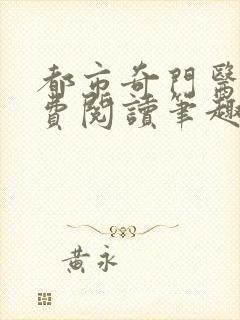 都市奇門醫
費閱讀筆趣
黃永